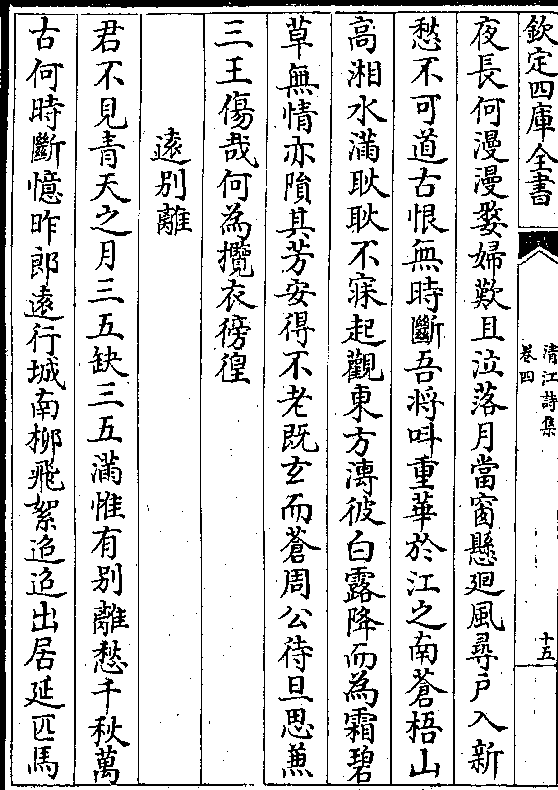 欽定四庫全書
清江詩集
卷四
十五
夜長何漫漫嫠婦歎且泣落月當窗懸廻風尋戶入新
愁不可道古恨無時斷吾將呌重華於江之南蒼梧山
高湘水滿耿耿不寐起觀東方漙彼白露降而為霜碧
草無情亦隕其芳安得不老既玄而蒼周公待旦思兼
三王傷哉何為攬衣徬徨
遠別離
君不見青天之月三五缺三五滿惟有别離愁千秋萬
古何時斷憶昨郎遠行城南柳飛絮迢迢出居延匹馬